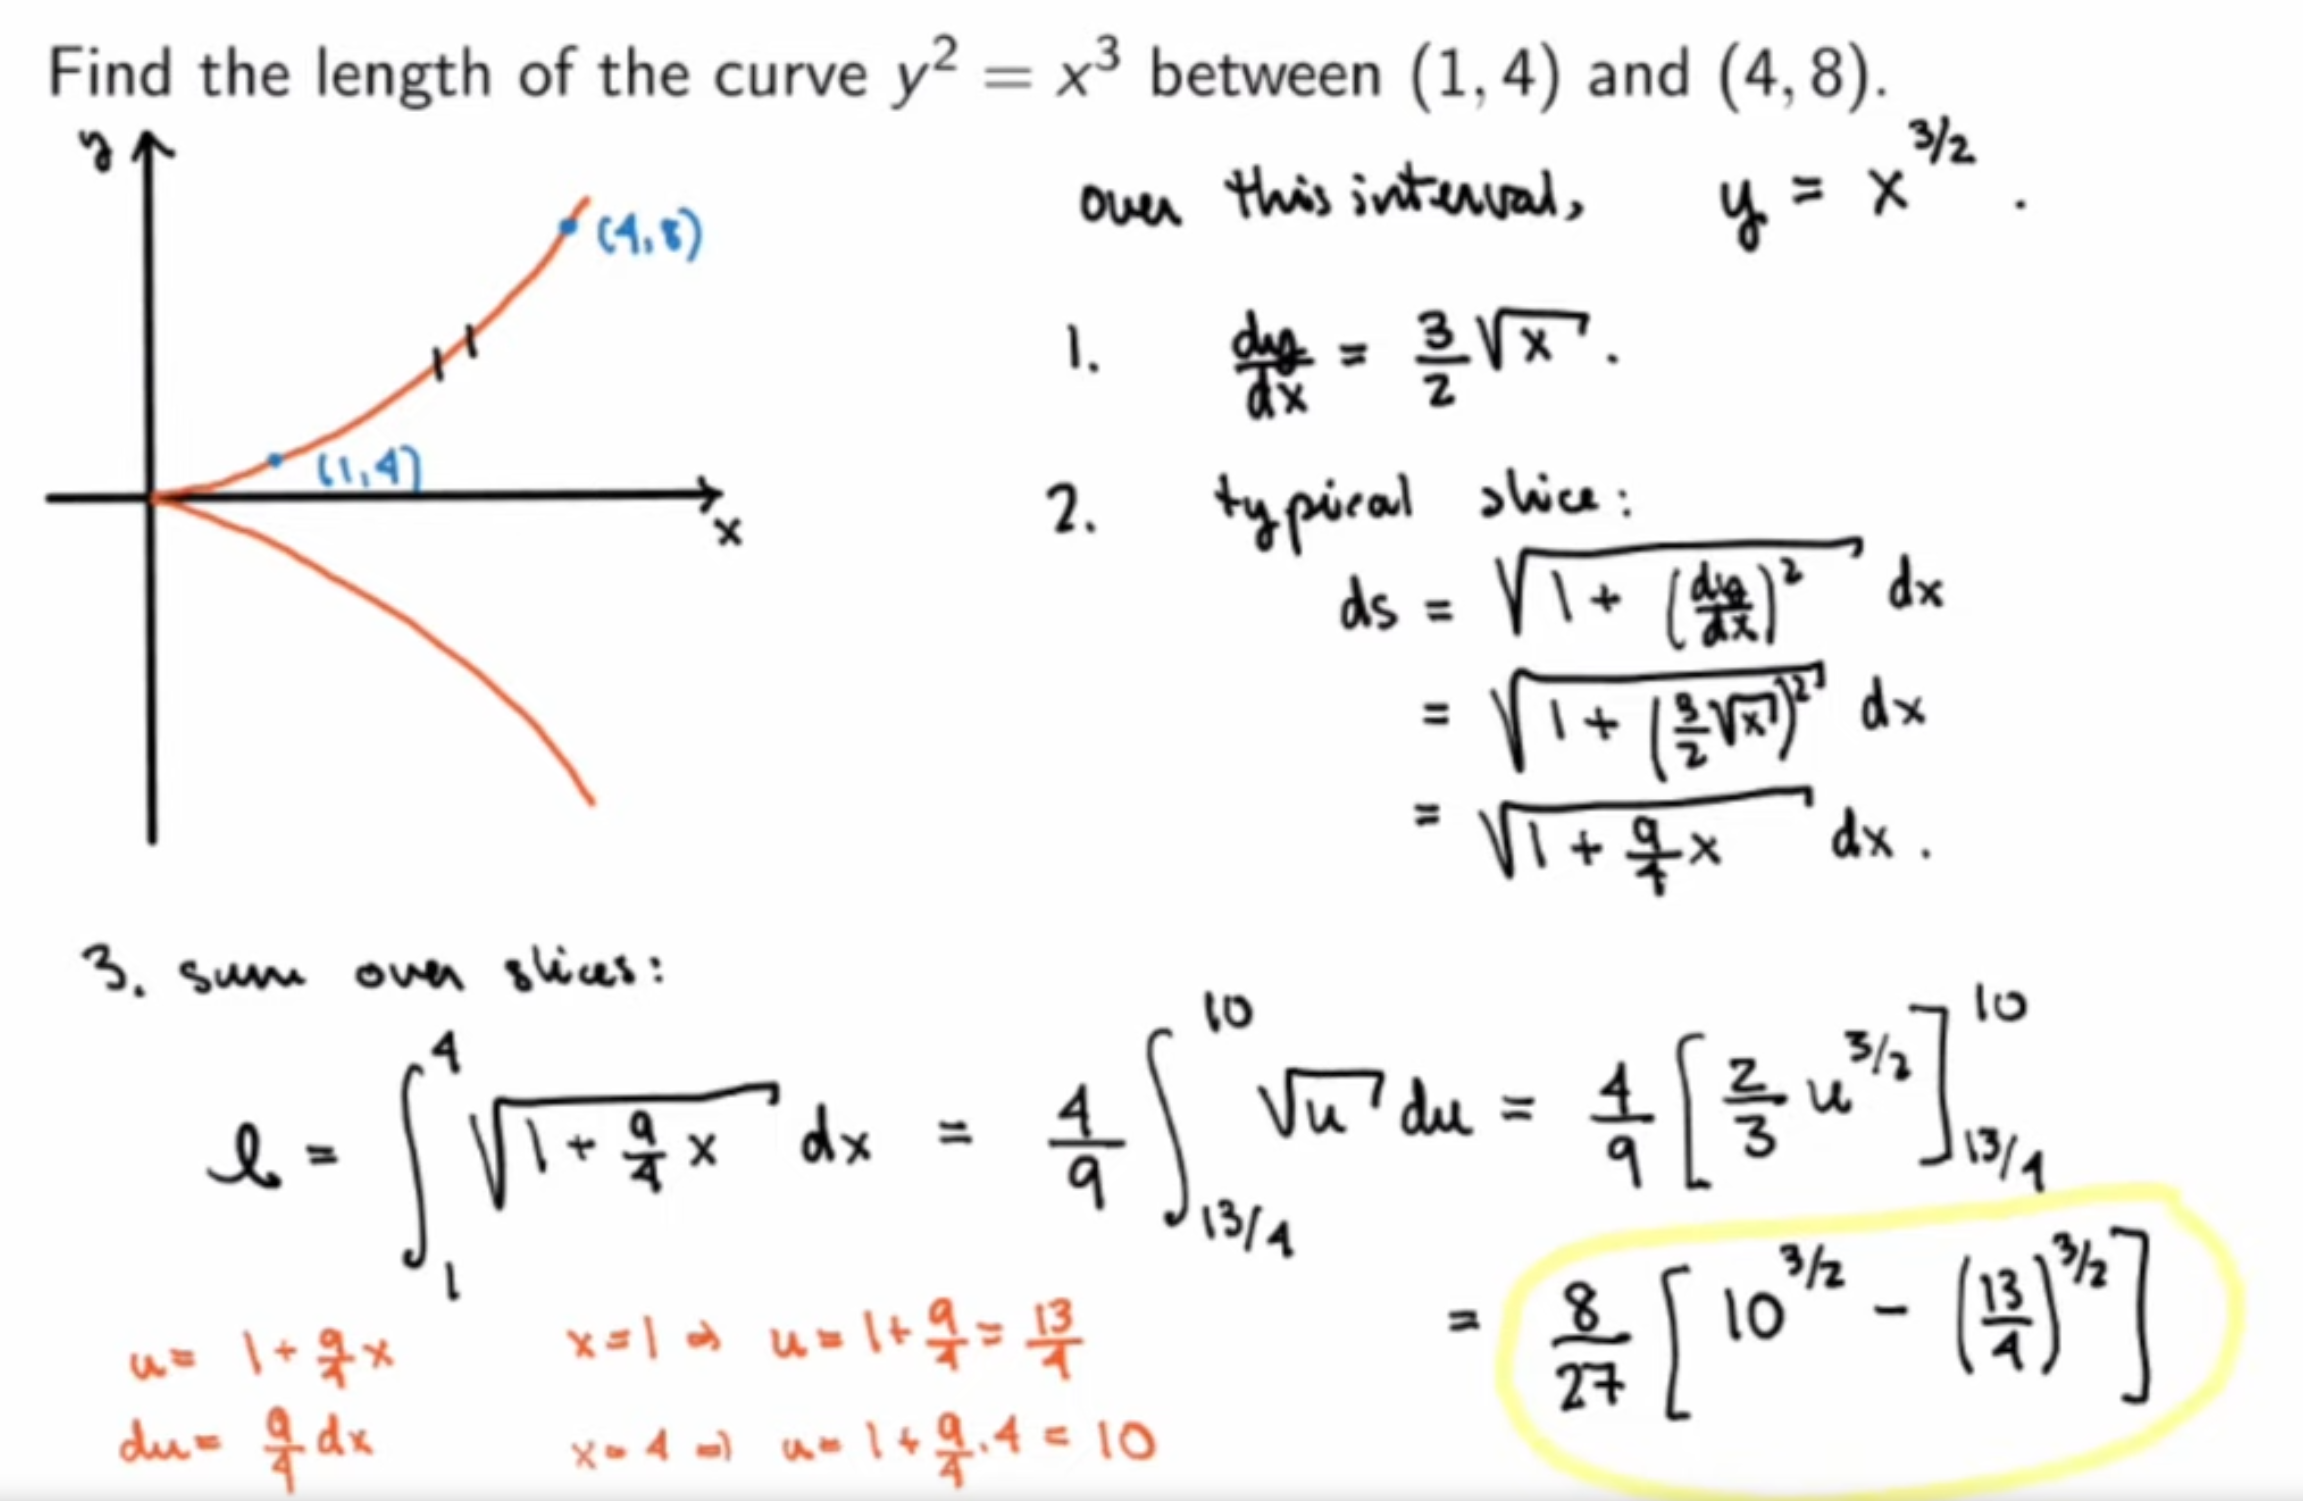 Find the length of the curve y² = x³ between (1, 4) and (4, 8).
y
(4,8)
(1,4)
x
over this interval, y = x^{3/2}.
1. dy/dx = 3/2 √x.
2. typical slice:
ds = √(1 + (dy/dx)²) dx
= √(1 + (3/2 √x)²) dx
= √(1 + 9/4 x) dx.
3. sum over slices:
l = ∫_1^4 √(1 + 9/4 x) dx = 4/9 ∫_{13/4}^{10} √u du = 4/9 [2/3 u^{3/2}]_{13/4}^{10}
= 8/27 [10^{3/2} - (13/4)^{3/2}]
u = 1 + 9/4 x
du = 9/4 dx
x = 1 ⇒ u = 1 + 9/4 = 13/4
x = 4 ⇒ u = 1 + 9/4 . 4 = 10